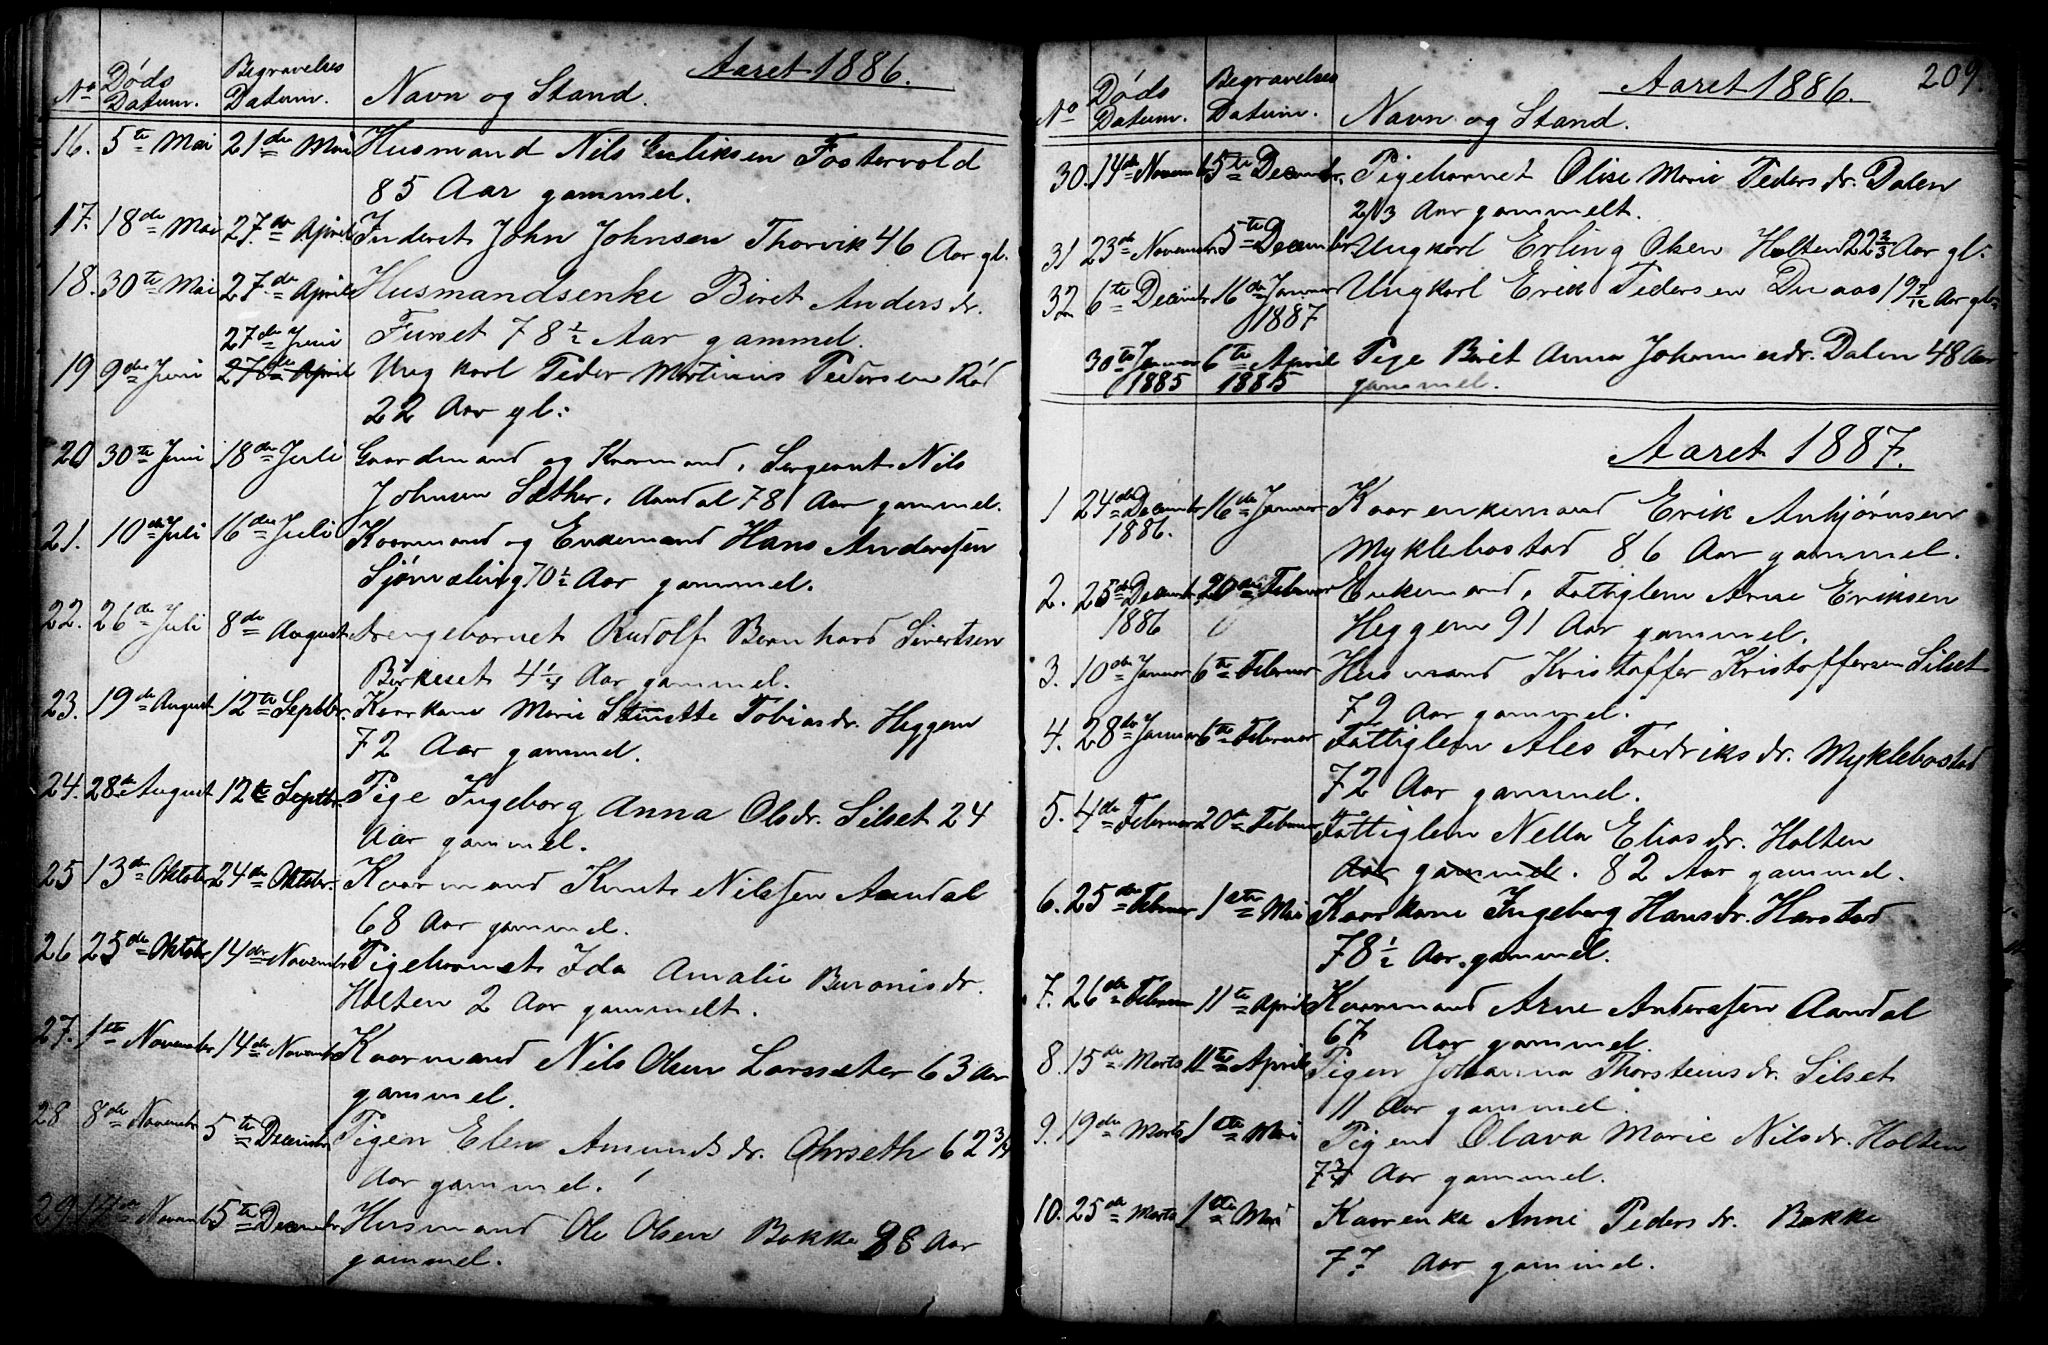 Aaret 1886.
No Døds Datum. Begravelses Datum. Navn og Stand.
16. 5te Mai 21de Mai Husmand Nils Eriksen Fostervold
85 Aar gammel.
17. 18de Mai 27de April Inderst John Johnsen Thorvik 46 Aar gl.
18. 30te Mai 27de April Husmandsenke Biret Andersdr.
Furset 78 1/2 Aar gammel.
27de Juni
19 9de Juni 27de April Ungkarl Peder Martinus Pedersen Rød
22 Aar gl:
20 30te Juni 18de Juli Gaardmand og Kaarmand, Sergeant Nils
Johnsen Sæther, Aandal 78 Aar gammel.
21. 10de Juli 16de Juli Kaarmand og Enkemand Hans Anderssen
Sjømæling 70 1/2 Aar gammel.
22. 26de Juli 8de August Drengebarnet Rudolf Bernhard Sivertsen
Birkeset 4 1/4 Aar gammel.
23. 19de August 12te Septbr. Kaarkone Marie Stinette Tobiasdr. Heggem
72 Aar gammel.
24. 28de August 12te Septbr. Pige Ingeborg Anna Olsdr. Silset 24
Aar gammel.
25 13de Oktober 24de Oktobr. Kaarmand Knut Nilssen Aandal
68 Aar gammel.
26 25de Oktober 14de November Pigebarnet Ida Amalie Buronisdr.
Holten 2 Aar gammelt.
27. 1ste November 14de November Kaarmand Nils Olsen Larsæter 63 Aar
gammel.
28 8de November 5te December Pigen Elen Amundsdr. Ohrseth 62 3/4
Aar gammel.
29 14de November 5te December Husmand Ole Olsen Bakke 88 Aar
gammel.
209.
Aaret 1886.
No Døds Datum. Begravelses Datum. Navn og Stand.
30. 14de November 5te December. Pigebarnet Olise Marie Pedersdr. Dalen
2 1/3 Aar gammelt.
31 23de November 5te December Ungkarl Erling Olsen Holten 22 2/3 Aar gl:
32 6te December 16de Januar 1887 Ungkarl Erik Pedersen Duaas 19 7/12 Aar gl:
30te Januar 1885 6te April 1885 Pige Beret Anna Johannesdr. Dalen 48 Aar
gammel.
Aaret 1887.
1 24de December 1886. 16de Januar Kaarenkemand Erik Anbjørnsen
Myklebostad 86 Aar gammel.
2. 25de December 1886 20de Februar Enkemand, Fattiglem Arne Eriksen
Heggem 91 Aar gammel.
3. 10de Januar 6te Februar Husmand Kristoffer Kristoffersen Silset
72 Aar gammel.
4. 28de Januar 6te Februar Fattiglem Ales Fredriksdr. Myklebostad
72 Aar gammel.
5. 4de Februar 20de Februar Fattiglem Nella Eliasdr. Holten
Aar gammel. 82 Aar gammel.
6. 25de Februar 1ste Mai Kaarkone Ingeborg Hansdr. Harstad
78 1/2 Aar gammel.
7. 26de Februar 11te April Kaarmand Arne Anderssen Aandal
67 Aar gammel.
8. 15de Marts 11te April Pigen Johanna Thorsteinsdr. Silset
11 Aar gammel.
9. 19de Marts 1ste Mai Pigen Olava Marie Nilsdr. Holten
7 3/4 Aar gammel.
10. 25de Marts 1ste Mai Kaarenke Anne Pedersdr. Bakke
77 Aar gammel.